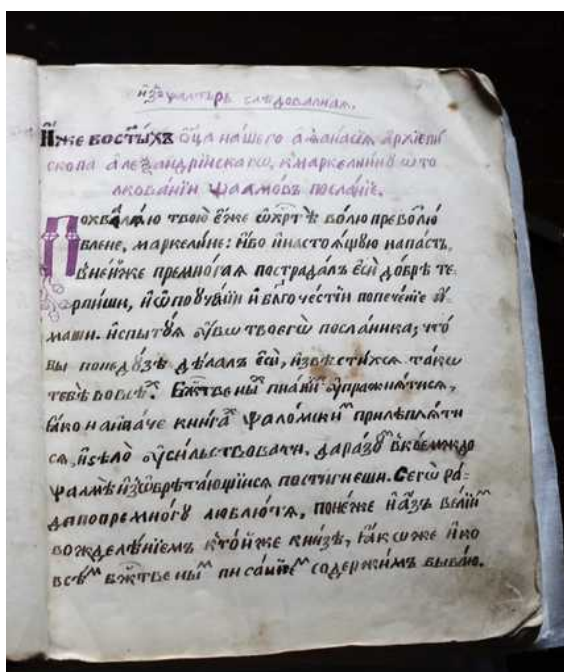 и҆зо ѱалтырь слѣдованная.
И҆́же во ст҃ы́хъ ѻ҆ц҃а̀ на́шегѡ а҆ѳана́сїа а҆рхїепи
скопа а҆леѯандрі́йскагѡ, к̾маркелли́нꙋ ѡ҆ то
лкова́нїи ѱалмо́въ посла́нїе.
Похвалѧ́ю твою̀ є҆́же ѡ҆ хрⷭ҇тѣ̀ во́лю преволю
блене, маркели́не: и҆́бо и҆ настоѧ́щꙋю напа́сть,
в̾не́йже премно́гаѧ пострада́лъ є҆сѝ до́брѣ те
рпи́ши, и҆ ѡ҆ поꙋче́нїи и҆ бл҃гоче́стїи попече́нїе и҆́
маши. и҆спытꙋ́ѧ ᲂу҆́бѡ твоегѡ̀ посла́нника; что̀
бы по недꙋ́зѣ дѣ́лалъ є҆сѝ, и҆звѣсти́хсѧ та́кѡ
тебѣ̀ во всѣ́ⷨ. Бжⷭ҇твены́ⷨ писа́нїи ᲂу҆пражнѧ́тисѧ,
ꙗ҆́кѡ наипа́че кни́гаⷨ ѱало́мски́ⷨ прилѣплѧ́ти
сѧ, и҆ ѕѣлѡ̀ ᲂу҆си́льствовати, да ра́зꙋⷨ в̾ко́емждо
ѱалмѣ̀ и҆з̾ѡбрѣта́ющїйсѧ пости́гнеши. Сегѡ̀ ра́
ди попремно́гꙋ люблю́ тѧ, поне́же и҆ а҆́зъ ве́лїиⷨ
вожделѣ́нїемъ к̾то́йже кни́зѣ, ꙗ҆́кѡже и҆ ко
всѣ́ⷨ бжⷭ҇твены́ⷨ писа́нїеⷨ содержи́мъ быва́ю.